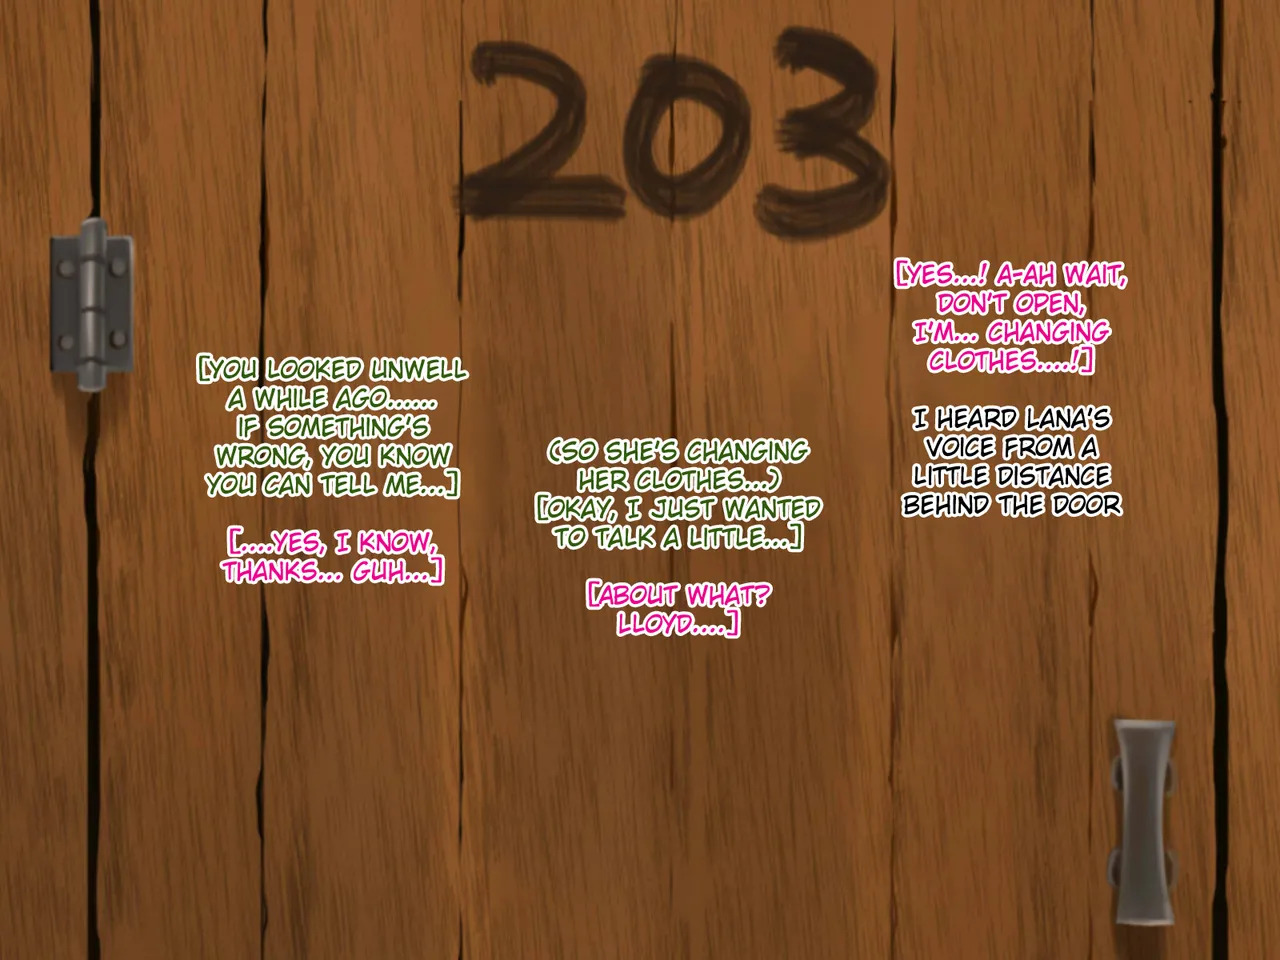 203
[YES...! A-AH WAIT,
DON'T OPEN,
I'M... CHANGING
CLOTHES....!]
I HEARD LANA'S
VOICE FROM A
LITTLE DISTANCE
BEHIND THE DOOR
(SO SHE'S CHANGING
HER CLOTHES...)
[OKAY, I JUST WANTED
TO TALK A LITTLE...]
[ABOUT WHAT?
LLOYD....]
[YOU LOOKED UNWELL
A WHILE AGO......
IF SOMETHING'S
WRONG, YOU KNOW
YOU CAN TELL ME...]
[....YES, I KNOW,
THANKS... GUH...]